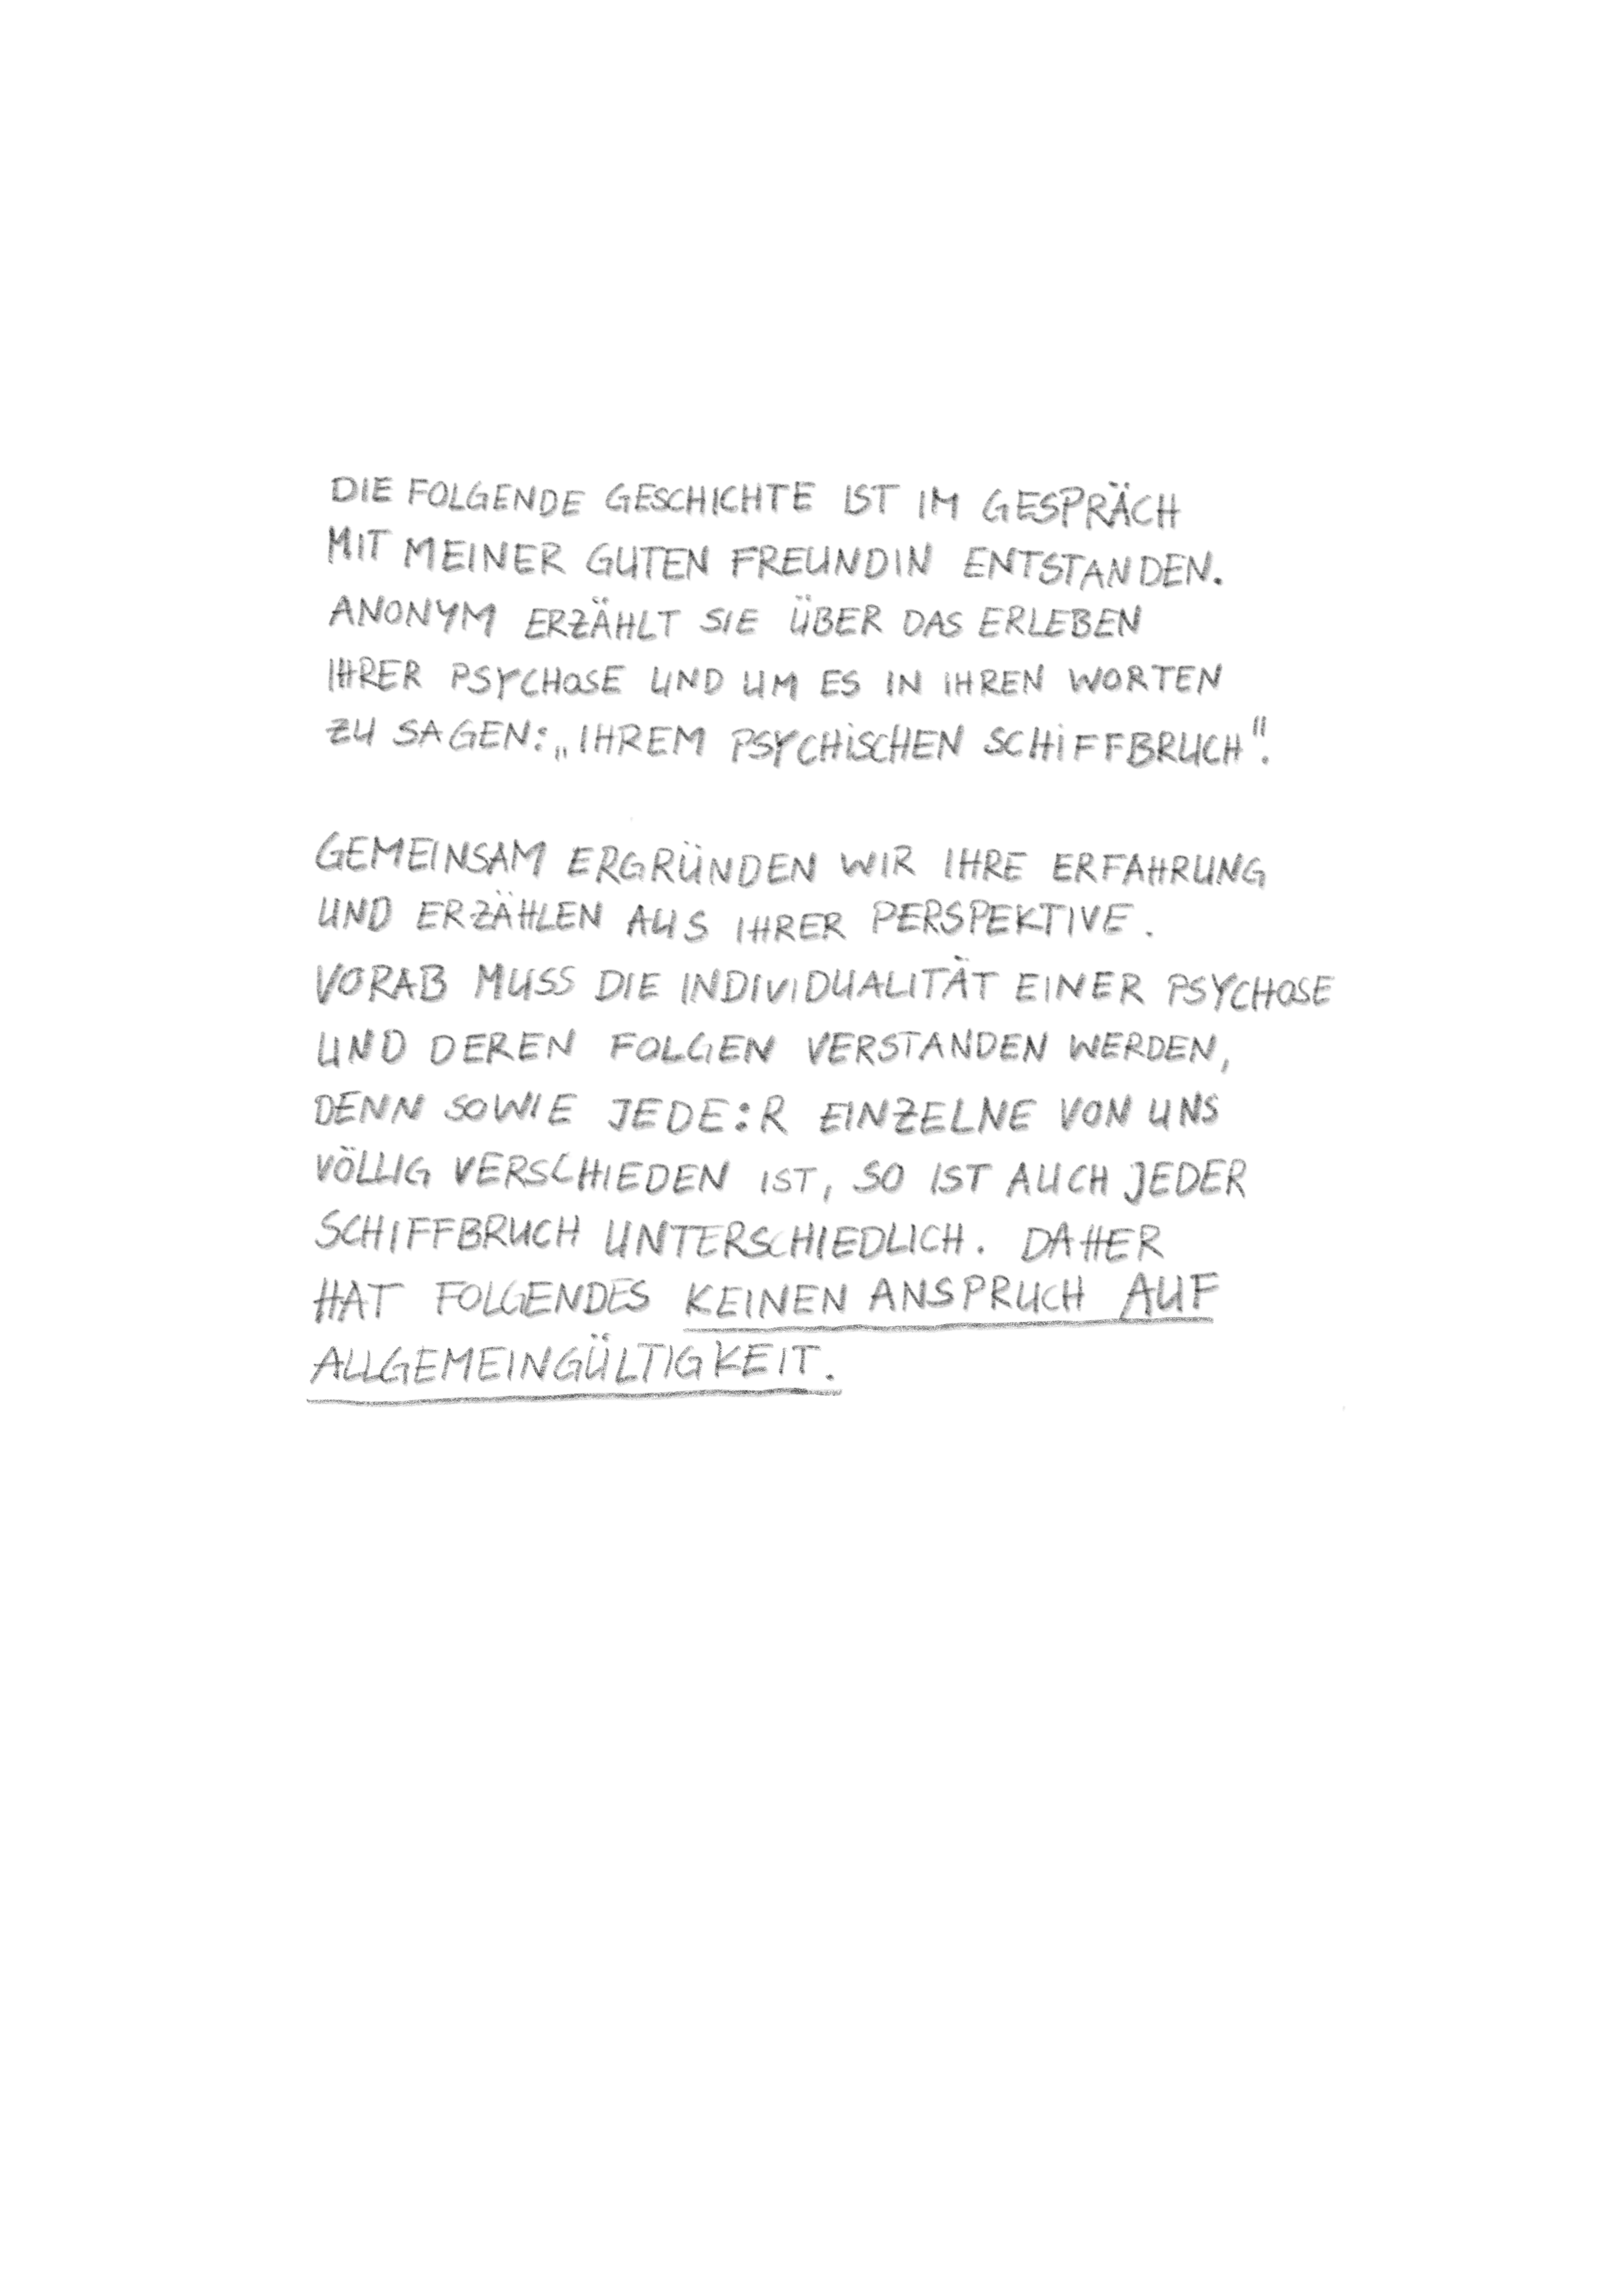 DIE FOLGENDE GESCHICHTE IST IM GESPRÄCH
MIT MEINER GUTEN FREUNDIN ENTSTANDEN.
ANONYM ERZÄHLT SIE ÜBER DAS ERLEBEN
IHRER PSYCHOSE UND UM ES IN IHREN WORTEN
ZU SAGEN: „IHREM PSYCHISCHEN SCHIFFBRUCH".
GEMEINSAM ERGRÜNDEN WIR IHRE ERFAHRUNG
UND ERZÄHLEN AUS IHRER PERSPEKTIVE.
VORAB MUSS DIE INDIVIDUALITÄT EINER PSYCHOSE
UND DEREN FOLGEN VERSTANDEN WERDEN,
DENN SOWIE JEDE:R EINZELNE VON UNS
VÖLLIG VERSCHIEDEN IST, SO IST AUCH JEDER
SCHIFFBRUCH UNTERSCHIEDLICH. DAHER
HAT FOLGENDES KEINEN ANSPRUCH AUF
ALLGEMEINGÜLTIGKEIT.